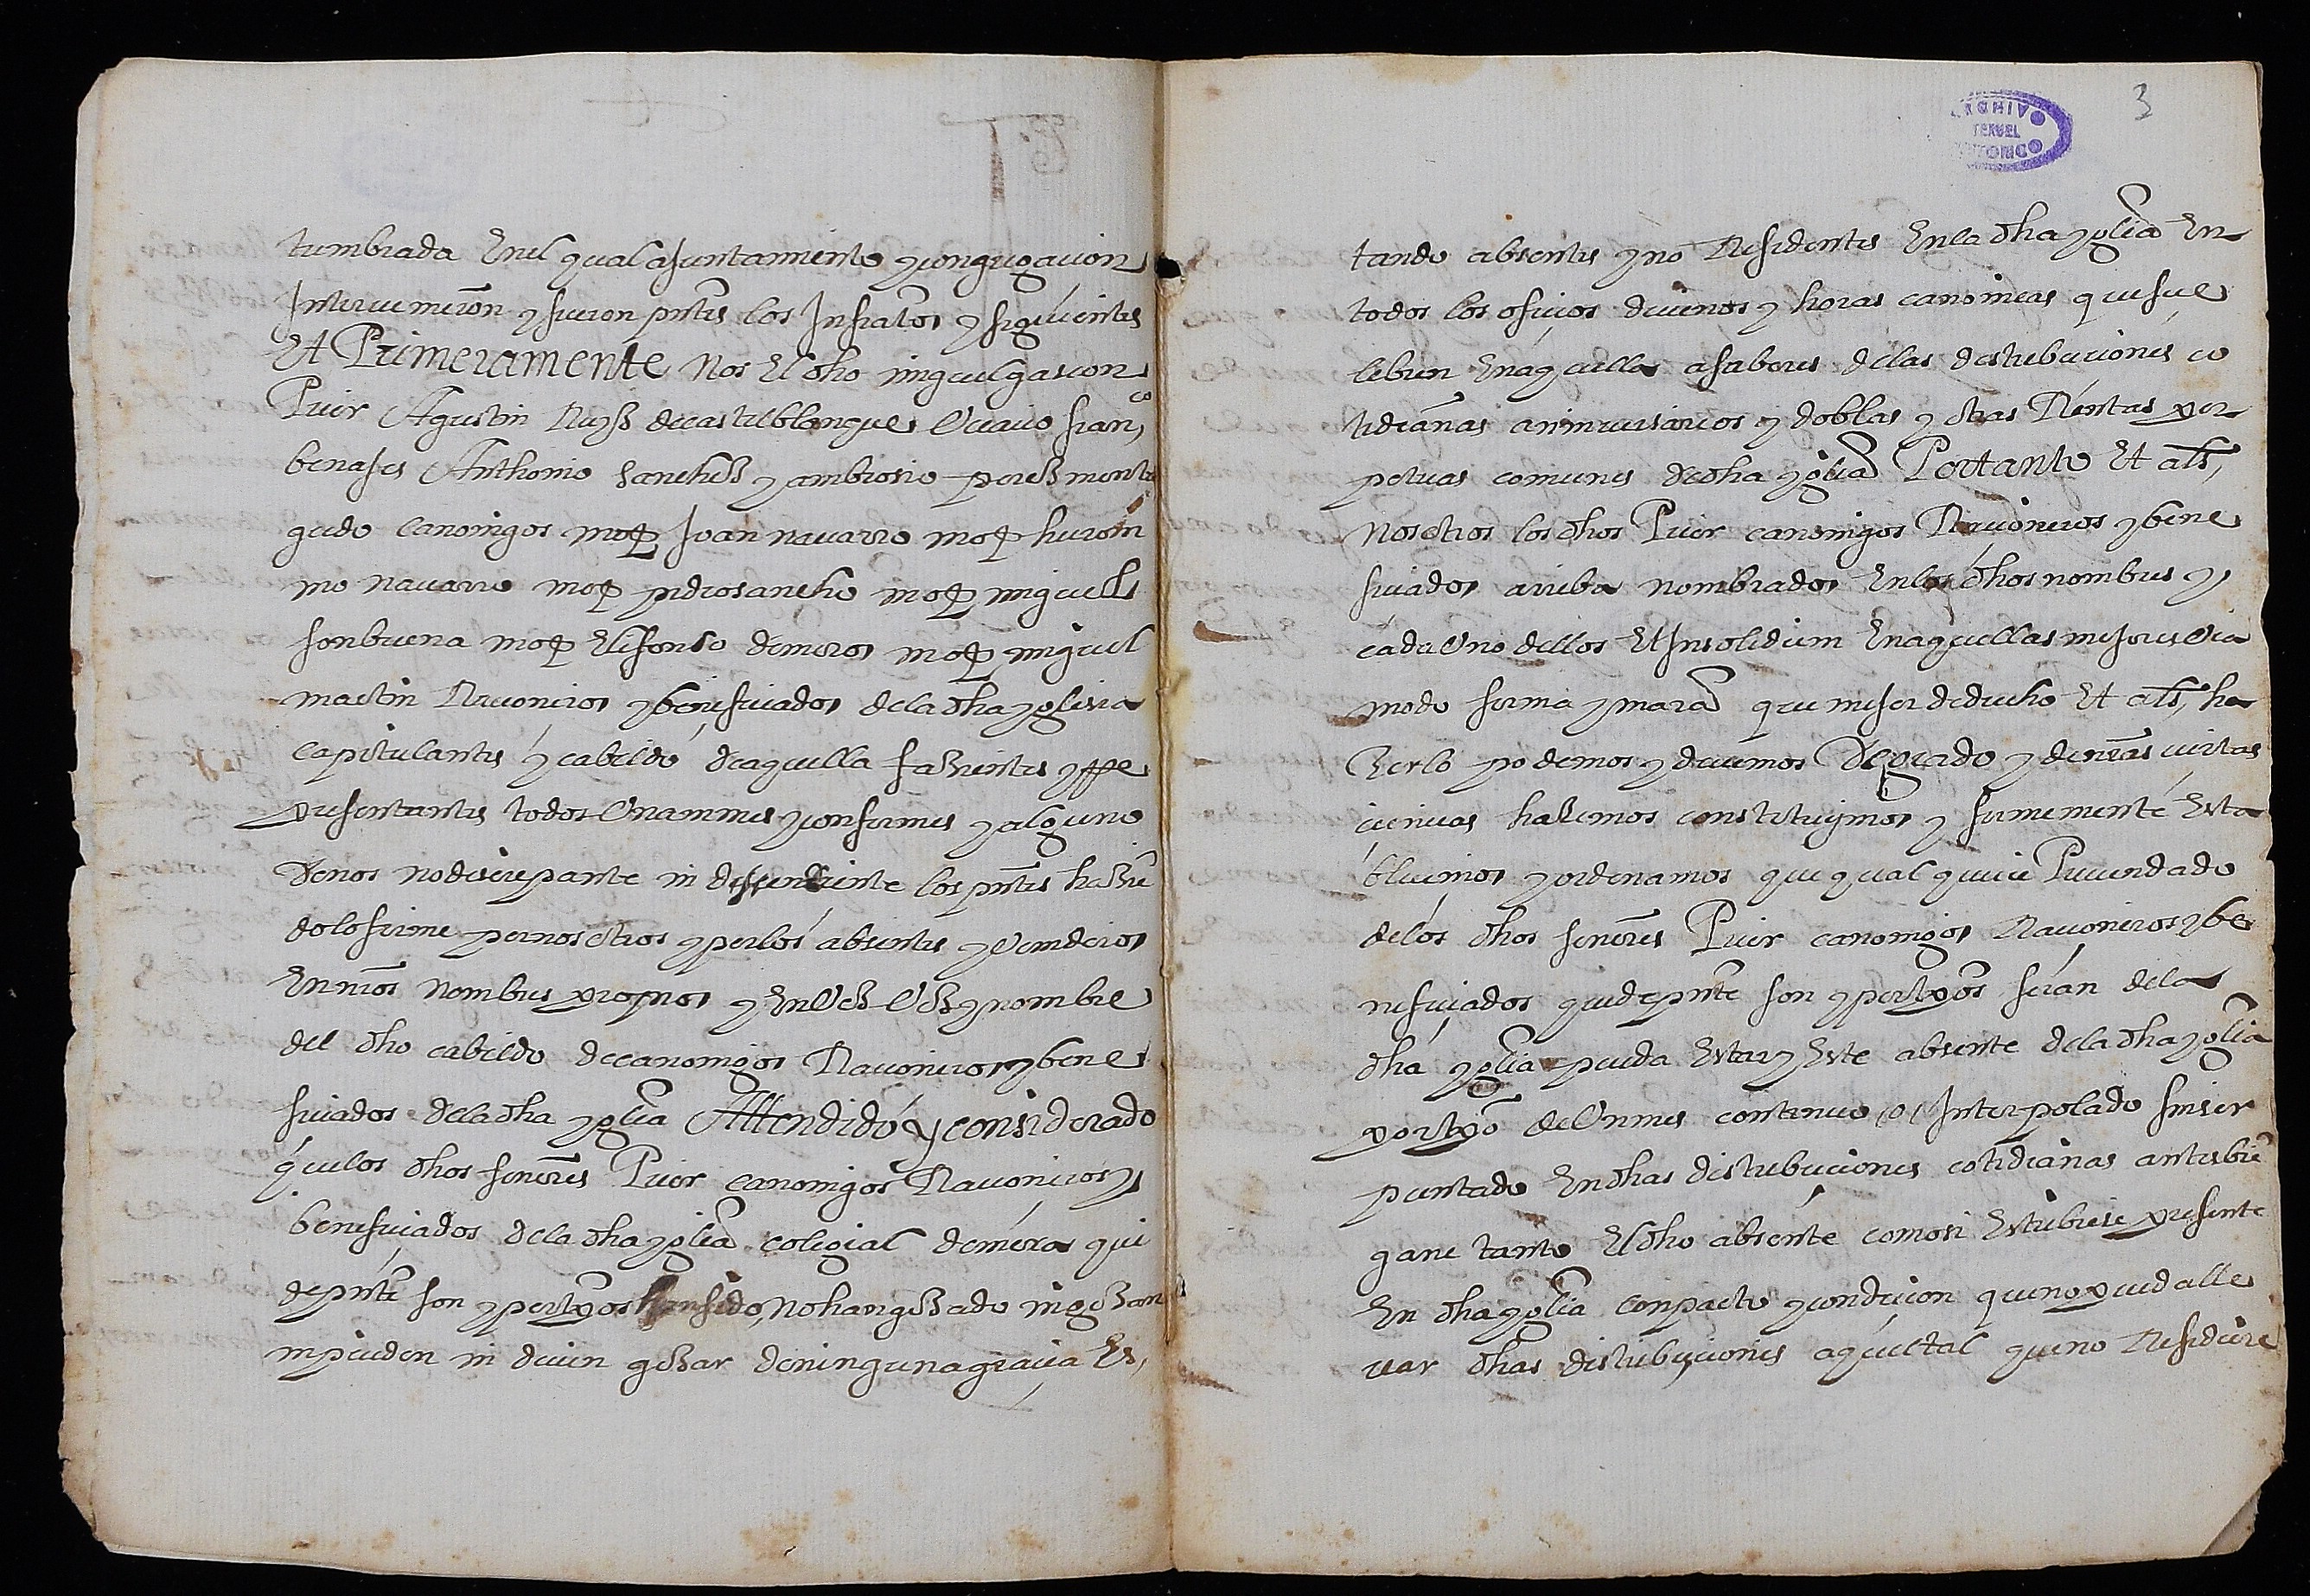 tumbrada Enel qual ajuntamiento y congregacion
Intervinieron y fueron pntes los Infratos y siguientes
Et Primeramente Nos El dho miguel gascon
Prior Agustin Ruyz de castilblanque Ocavio franco
benajes Anthonio sanchez y ambrosio perez monte
gudo canonigos mosen Joan navarro mosen hieroni
mo navarro mosen pedro sancho mosen miguel
fonbuena mosen Elifonso demora mosen miguel
martin Racioneros y beneficiados dela dha yglesia
capitulantes y cabildo de aquella fazientes y Re
presentantes todos Unanimes y conformes y alguno
de nos no discrepante ni los pntes hazien
dolo firme por nosotros y por los absentes y venideros
En nros nombres propios y En Vez y nombre
del dho cabildo de canonigos Racioneros y bene
ficiados dela dha yglia Attendido y considerado
que los dhos señores Prior canonigos Racioneros y
beneficiados dela dha yglia colegial de mora que
de pnte son y por tpo han sido, No han gozado ni gozan
ni pueden ni deven gozar de ninguna gracia Es,
3
ARCHIVO
TERUEL
HISTORICO
tando absentes y no Residentes En la dha yglia En
todos los oficios divinos y horas canonicas que se ce
lebren En aquella a saber es delas distribuciones co
tidianas aniversarios y doblas y otras Rentas per
petuas comunes de dha yglia Portanto Et als,
Nosotros los dhos Prior canonigos Racioneros y bene
ficiados arriba nombrados En los dhos nombres y
cada Uno dellos Et Insolidum En aquellas mejores Via
modo forma y mara que mejor de drecho Et als, ha
Zerlo podemos y devemos De grado y de nras ciertas
ciencias hazemos constituymos y firmemente Esta
blecemos y ordenamos que qual quiere Precendado
delos dhos señores Prior canonigos Racioneros y be
neficiados que de pnte son y por tpo seran dela
dha yglia pueda Estar y Este absente dela dha yglia
por tpo de Un mes continuo o Interpolado sin ser
puntado En dhas distribuciones cotidianas antes bien
gane tanto El dho absente como si Estubiese presente
En dha yglia con pacto y condicion que no pueda lle
var dhas distribuciones aquel tal que no Residiere